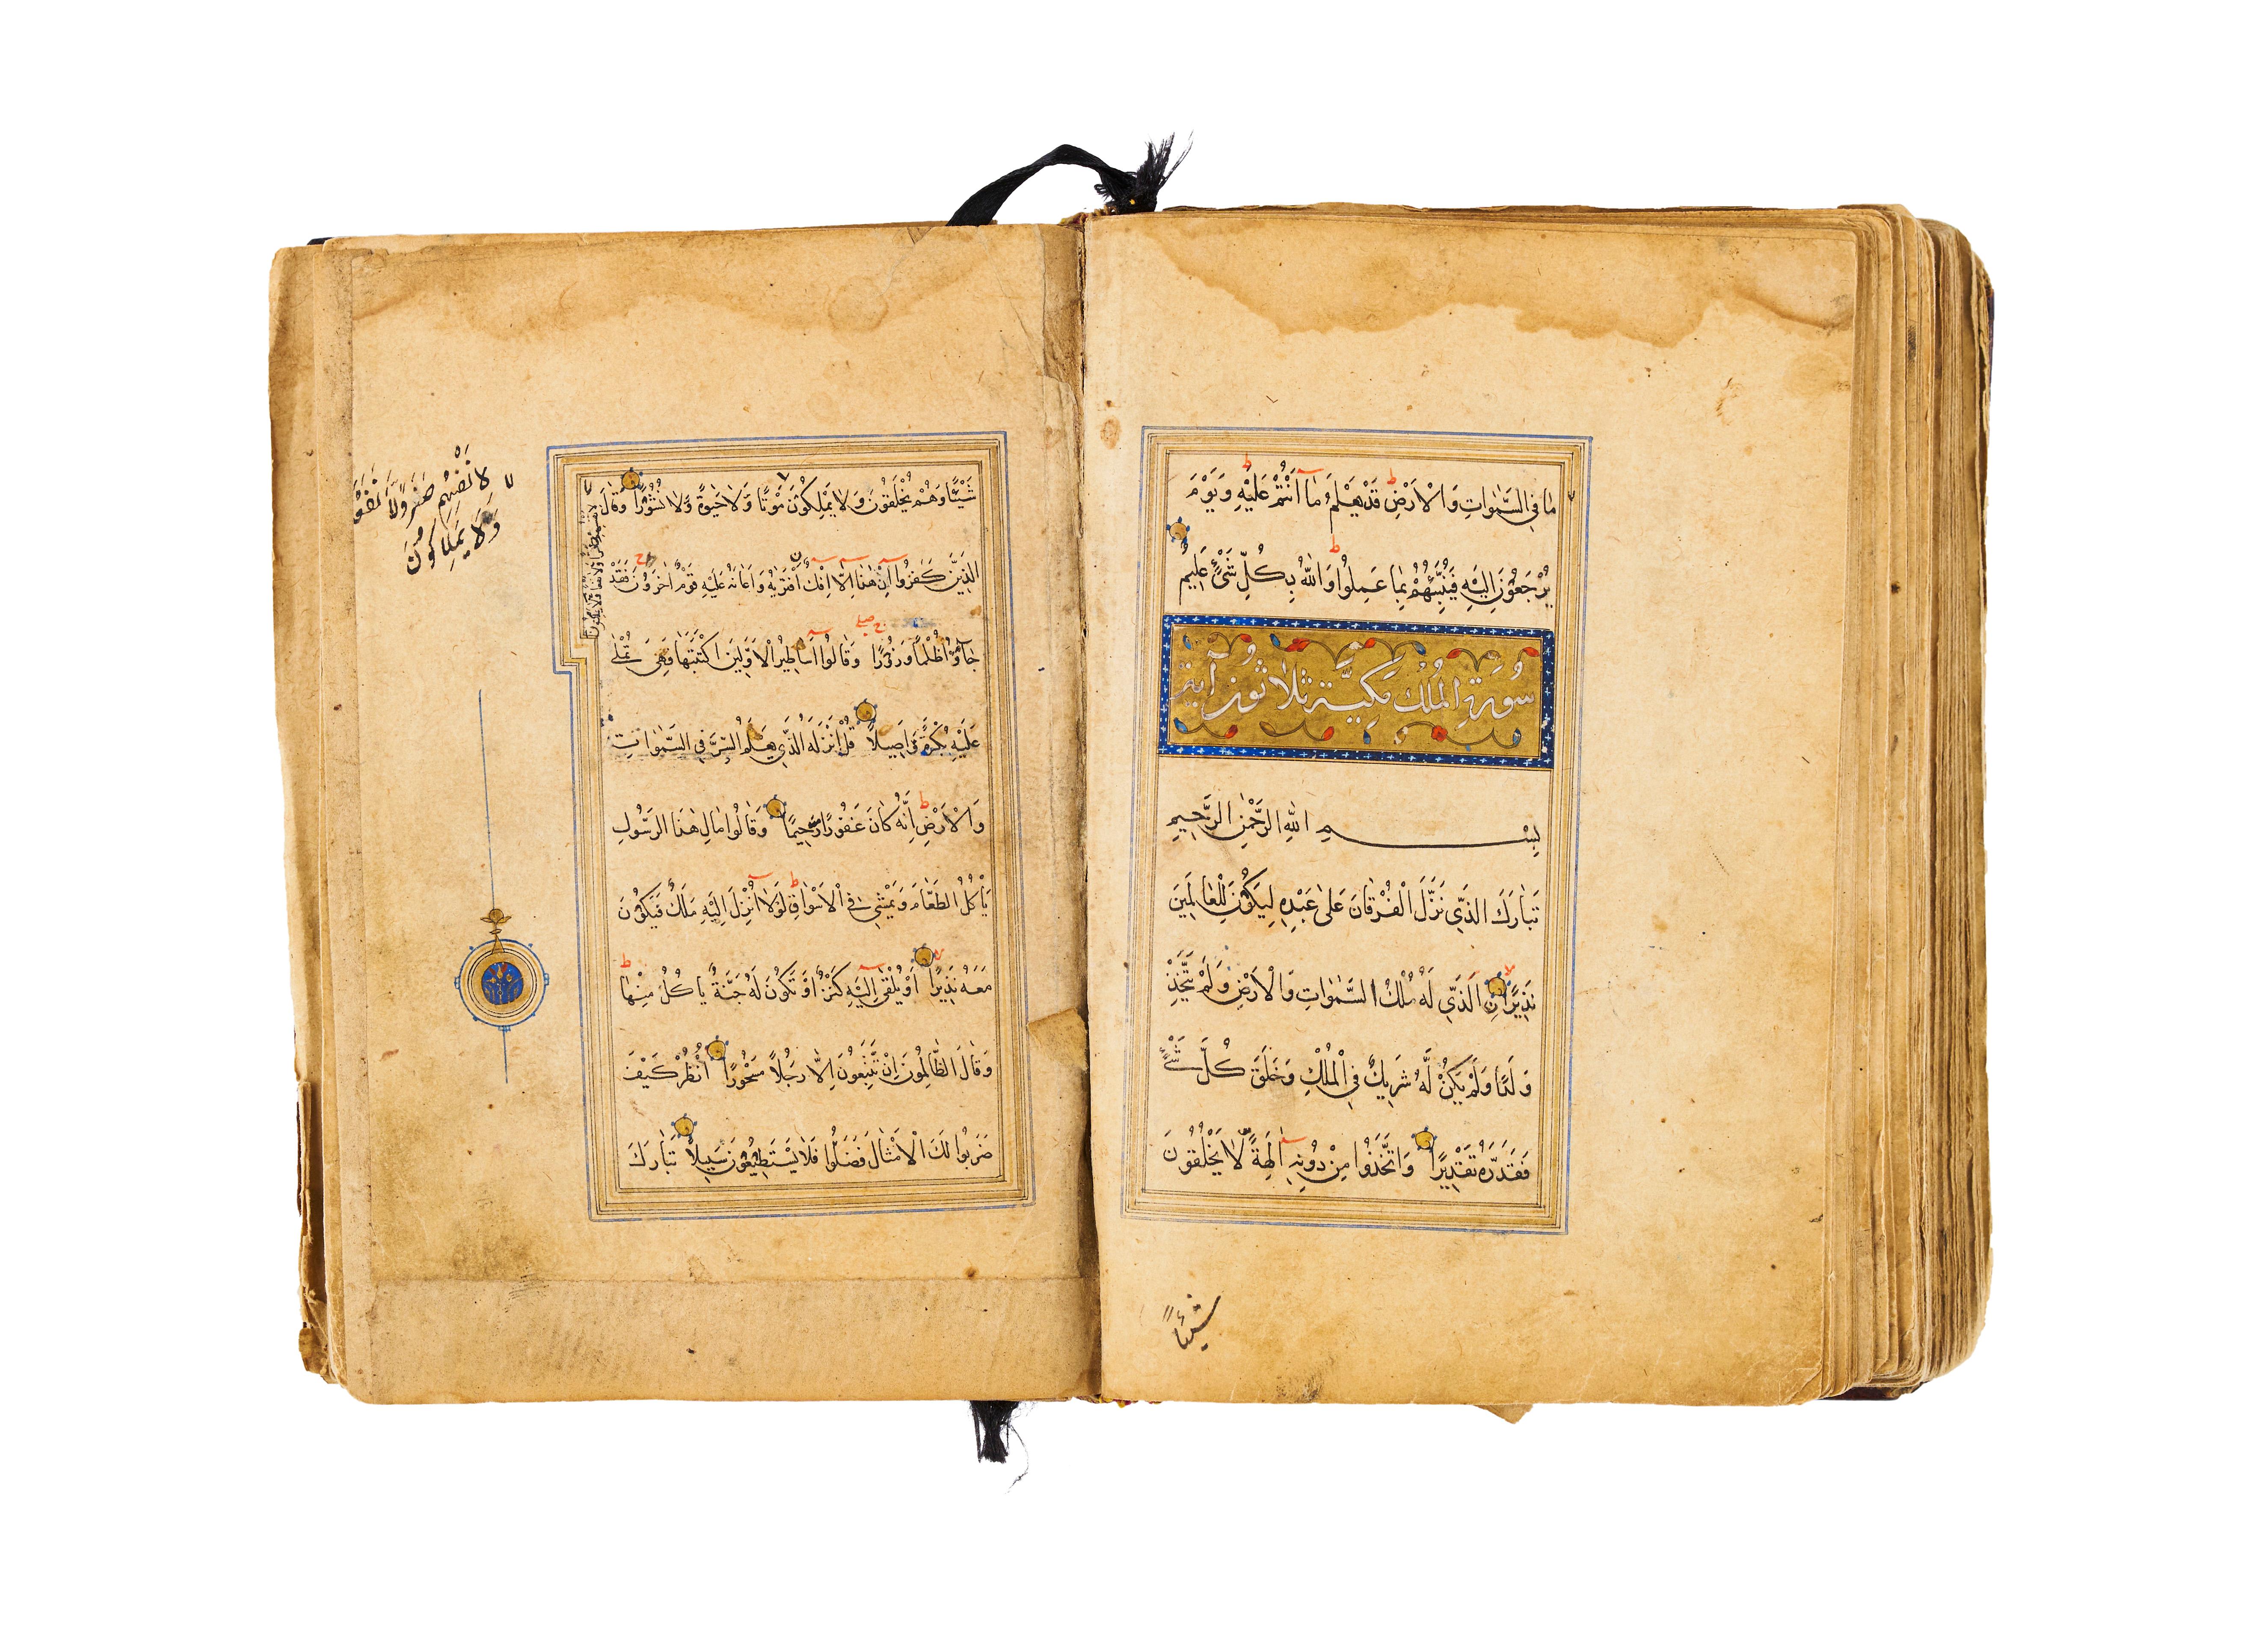 مَا فِي السَّمٰوَاتِ وَالْاَرْضِ قَدْ يَعْلَمُ مَا اَنْتُمْ عَلَيْهِ وَيَوْمَ
يُرْجَعُونَ اِلَيْهِ فَيُنَبِّئُهُمْ بِمَا عَمِلُوا وَاللّٰهُ بِكُلِّ شَيْءٍ عَلِيمٌ
سُورَةِ الْمُلْكُ مَكِيَّة ثَلَاثُونَ آيَة
بِسْمِ اللّٰهِ الرَّحْمٰنِ الرَّحِيمِ
تَبَارَكَ الَّذِي نَزَّلَ الْفُرْقَانَ عَلٰى عَبْدِهِ لِيَكُونَ لِلْعَالَمِينَ
نَذِيرًا نِ الَّذِي لَهُ مُلْكُ السَّمٰوَاتِ وَالْاَرْضِ وَلَمْ يَتَّخِذْ
وَلَدًا وَلَمْ يَكُنْ لَهُ شَرِيكٌ فِي الْمُلْكِ وَخَلَقَ كُلَّ شَيْءٍ
فَقَدَّرَهُ تَقْدِيرًا وَاتَّخَذُوا مِنْ دُونِهِ اٰلِهَةً لَّا يَخْلُقُونَ
شَيْئًا
شَيْئًا وَهُمْ يُخْلَقُونَ وَلَا يَمْلِكُونَ مَوْتًا وَّلَا حَيٰوةً وَّلَا نُشُورًا وَقَالَ
الَّذِينَ كَفَرُوا اِنْ هٰذَا اِلَّا اِفْكٌ افْتَرٰيهُ وَاَعَانَهُ عَلَيْهِ قَوْمٌ اٰخَرُونَ فَقَدْ
جَآؤُ ظُلْمًا وَزُورًا وَقَالُوا اَسَاطِيرُ الْاَوَّلِينَ اكْتَتَبَهَا فَهِيَ تُمْلٰى
عَلَيْهِ بُكْرَةً وَاَصِيلًا قُلْ اَنْزَلَهُ الَّذِي يَعْلَمُ السِّرَّ فِي السَّمٰوَاتِ
وَالْاَرْضِ اِنَّهُ كَانَ غَفُورًا رَحِيمًا وَقَالُوا مَالِ هٰذَا الرَّسُولِ
يَأْكُلُ الطَّعَامَ وَيَمْشِي فِي الْاَسْوَاقِ لَوْلَا اُنْزِلَ اِلَيْهِ مَلَكٌ فَيَكُونَ
مَعَهُ نَذِيرًا اَوْ يُلْقٰى اِلَيْهِ كَنْزٌ اَوْ تَكُونُ لَهُ جَنَّةٌ يَأْكُلُ مِنْهَا
وَقَالَ الظَّالِمُونَ اِنْ تَتَّبِعُونَ اِلَّا رَجُلًا مَسْحُورًا اُنْظُرْ كَيْفَ
ضَرَبُوا لَكَ الْاَمْثَالَ فَضَلُّوا فَلَا يَسْتَطِيعُونَ سَبِيلًا تَبَارَكَ
لِاَنْفُسِهِمْ ضَرًّا وَلَا نَفْعًا
وَلَا يَمْلِكُونَ